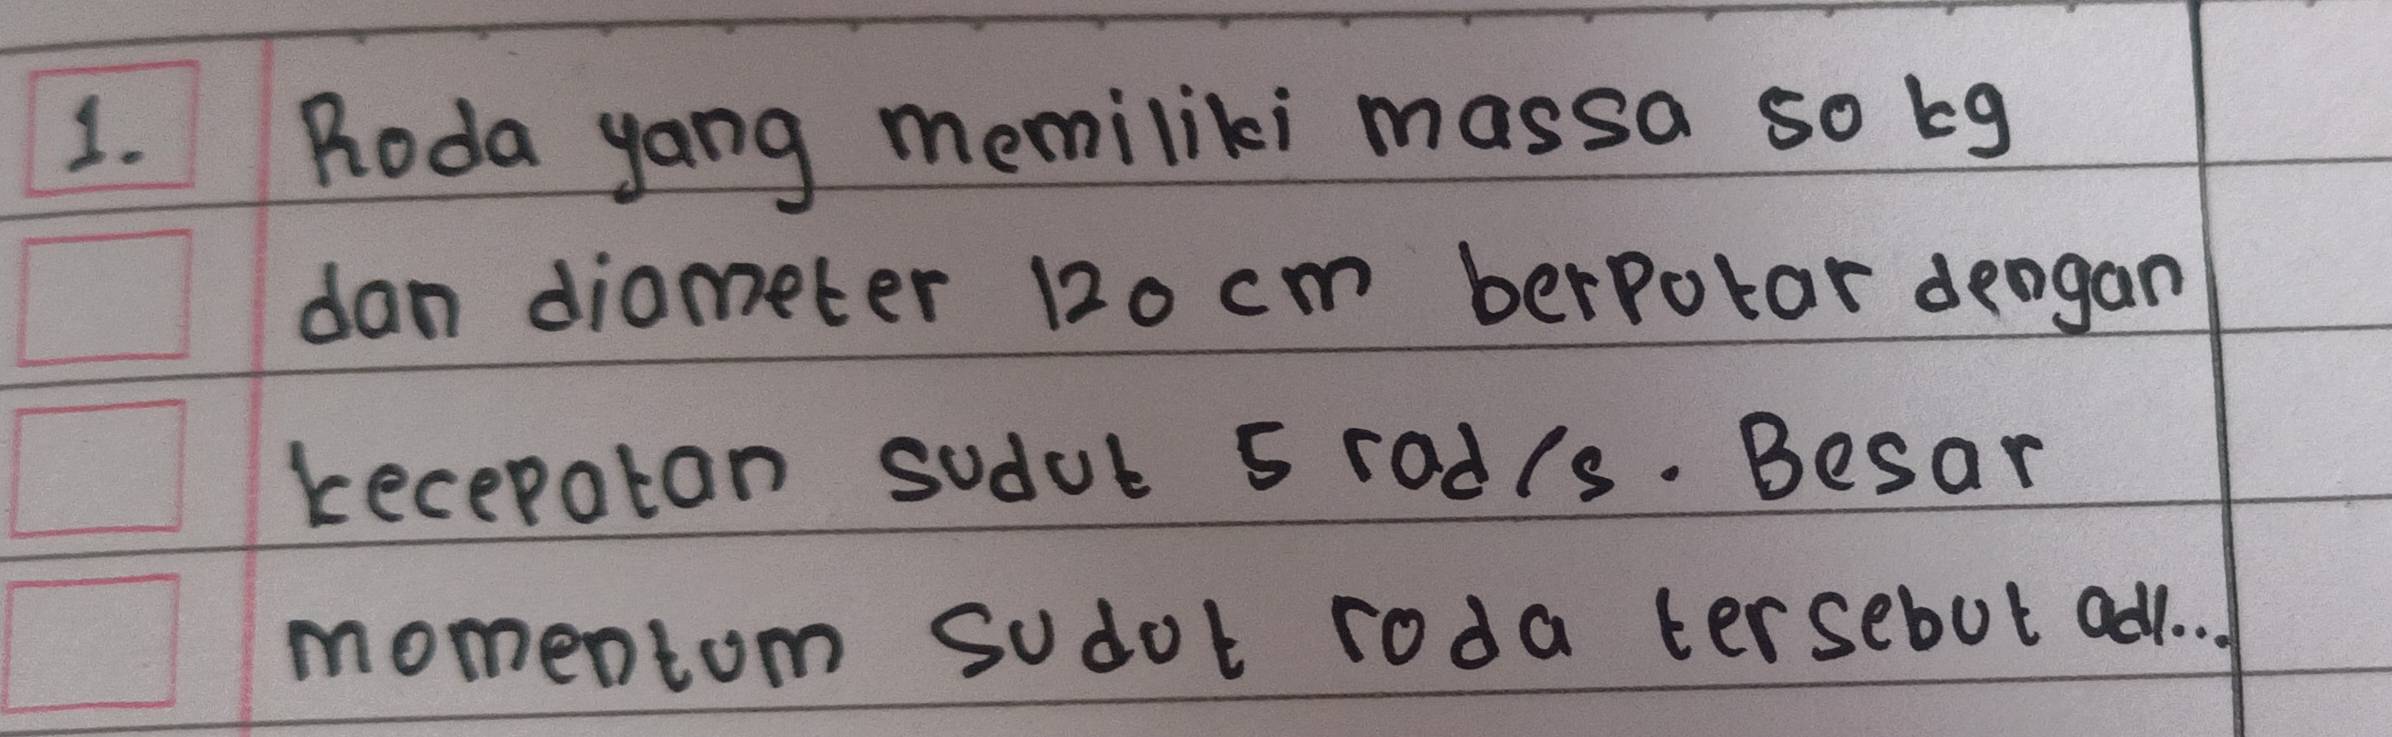 1. Roda yang memiliki massa 50 kg
dan diameter 120 cm berputar dengan
kecepatan sudut 5 rad/s. Besar
momentum sudut roda tersebut adl...